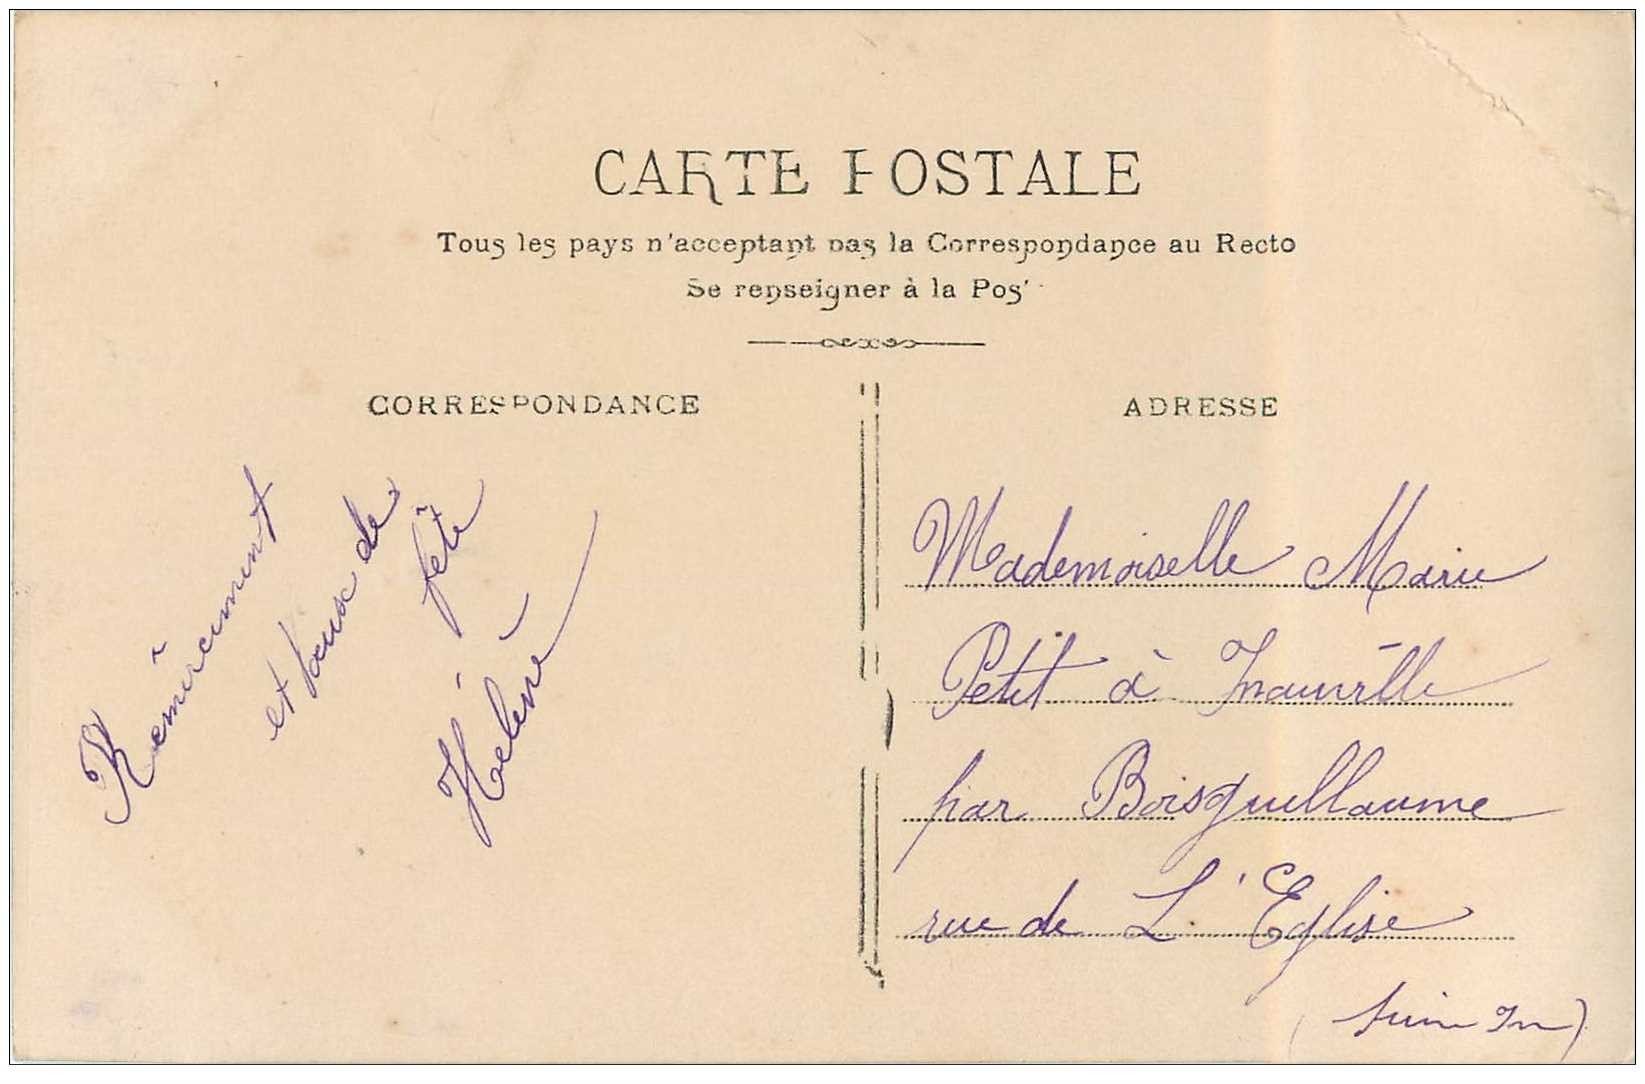 CARTE POSTALE
Tous les pays n'acceptant pas la Correspondance au Recto
Se renseigner à la Pos
CORRESPONDANCE
Remerciement
et vœux de
fête
Hélène
ADRESSE
Mademoiselle Marie
Petit à
par Boisguillaume
rue de L'Eglise
(Seine In)